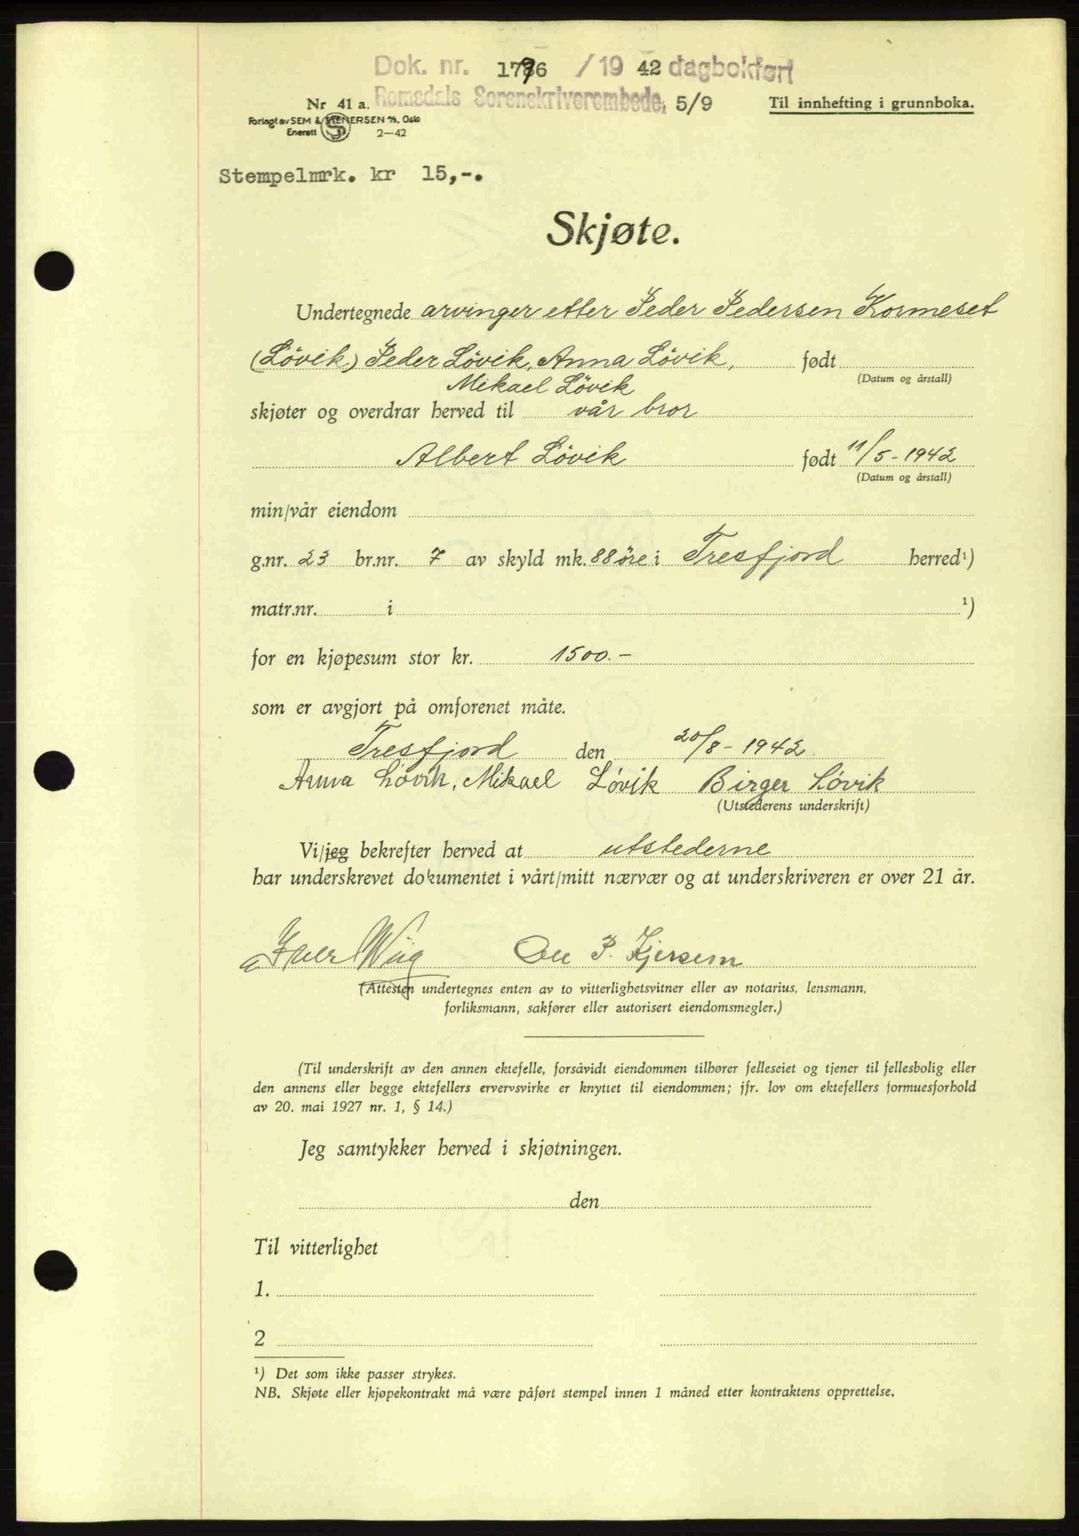 Dok. nr. 1776 / 19 42 dagbokført
Romsdals Sorenskriverembede, 5/9
Nr 41 a.
Til innhefting i grunnboka.
Forlagt av SEM & STENERSEN A/S, Oslo
Enerett 2—42
Stempelmrk. kr 15,-.
Skjøte.
Undertegnede arvinger etter Peder Pedersen Kormeset
(Løvik) Peder Løvik, Anna Løvik, født
(Datum og årstall)
Mikael Løvik
skjøter og overdrar herved til vår bror
Albert Løvik født 11/5-1942
(Datum og årstall)
min/vår eiendom
g.nr. 23 br.nr. 7 av skyld mk. 88 øre i Tresfjord herred¹)
matr.nr. i ¹)
for en kjøpesum stor kr. 1500.-
som er avgjort på omforenet måte.
Tresfjord den 20/8-1942.
Anna Løvik, Mikael Løvik Birger Løvik
(Utstederens underskrift)
Vi/jeg bekrefter herved at utstederne
har underskrevet dokumentet i vårt/mitt nærvær og at underskriveren er over 21 år.
Iver Wiig Ole P. Kjersem
(Attesten undertegnes enten av to vitterlighetsvitner eller av notarius, lensmann,
forliksmann, sakfører eller autorisert eiendomsmegler.)
(Til underskrift av den annen ektefelle, forsåvidt eiendommen tilhører felleseiet og tjener til fellesbolig eller
den annens eller begge ektefellers ervervsvirke er knyttet til eiendommen; jfr. lov om ektefellers formuesforhold
av 20. mai 1927 nr. 1, § 14.)
Jeg samtykker herved i skjøtningen.
den
Til vitterlighet
1.
2
¹) Det som ikke passer strykes.
NB. Skjøte eller kjøpekontrakt må være påført stempel innen 1 måned etter kontraktens opprettelse.